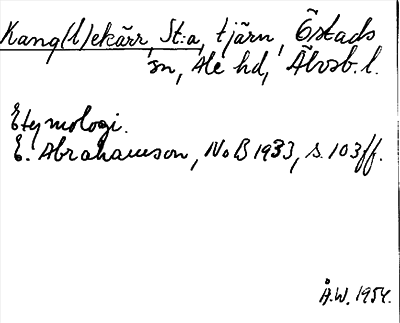 Kang(l)ekärr, St:a, tjärn, Östads
sn, Ale hd, Älvsb. l.
Etymologi.
E. Abrahamson, NoB 1933, s. 103ff.
Å.W. 1954.